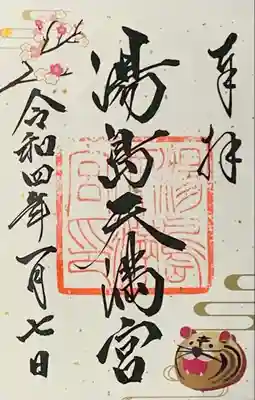 奉拝
湯島天満宮
令和四年一月七日